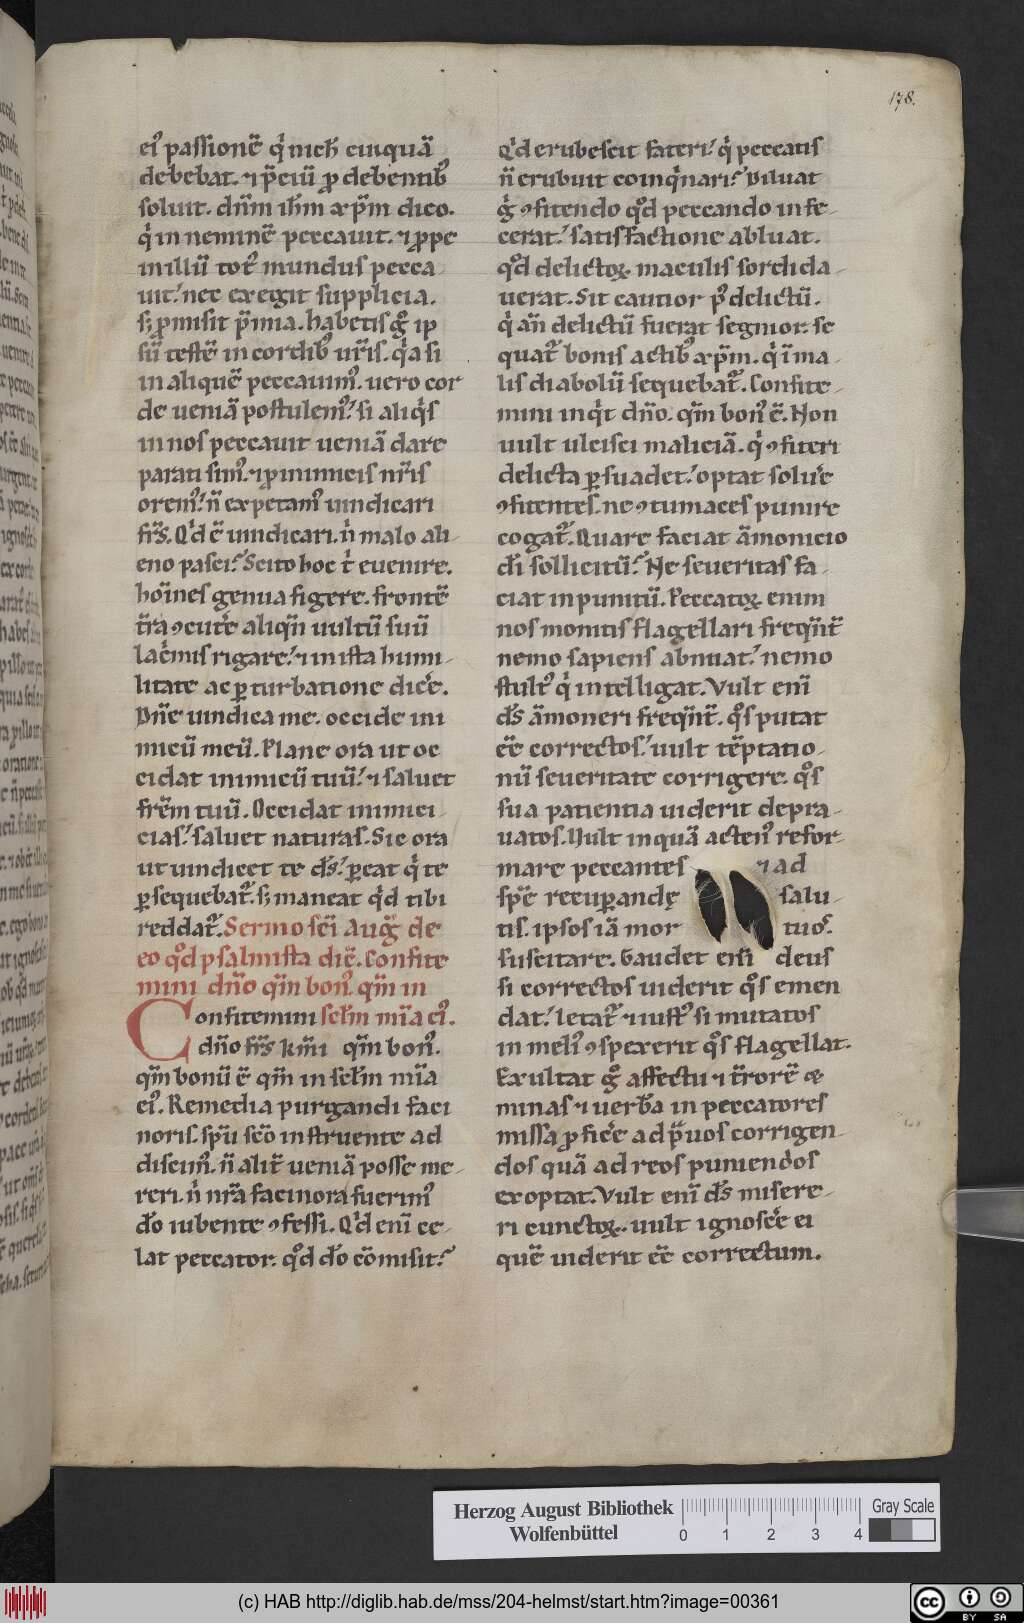 178.
ei᷒ passionē q̇ nich̄ cuiquā
debebat. ⁊ p̄ciū ꝓ debentibꝰ
soluit. dn̄m ih̄m xp̄m dico.
q̇ in neminē peccauit. ⁊ ꝓpe
in illū totꝰ mundus pecca
uit. nec exegit supplicia.
sꝫ ꝓmisit p̄mia. habetis gͦ ip
sū testē in cordibꝰ ur̄is. q̇a si
in aliquē peccauimꝰ. uero cor
de ueniā postulemꝰ. si aliq̇s
in nos peccauit ueniā dare
parati simꝰ. ⁊ ꝓ inimicis nr̄is
oremꝰ. n̄ expetamꝰ uindicari
fr̄s. Qͥd ē uindicari. nͥ malo ali-
eno pasci? Scito hoc tͥ euenire.
hoīnes genua figere. frontē
t̄ra ꝯcutēe aliqn̄ uultū suū
lac̄mis rigare. ⁊ in ista humi-
litate ac ꝑturbatione dicēe.
Dn̄e uindica me. occide ini
micū meū. Plane ora ut oc
cidat inimicū tuū. ⁊ saluet
frēm tuū. Occidat inimici
cias. saluet naturas. Sic ora
ut uindicet te ds̄. ꝑeat q̇ te
ꝑsequebat᷑. sꝫ maneat qͥd tibi
reddat᷑. Sermo sc̄i Auḡ de
eo qͦd psalmista dic̄. Confite
mini dn̄o qm̄ bonꝰ. qm̄ in
Confitemini sctm̄ mīa ei᷒.
dn̄o frs̄ kmi qm̄ bonꝰ.
qm̄ bonū ē qm̄ in sctm̄ mīa
ei᷒. Remedia purgandi faci
noris. sp̄u scō instruente ad
discimꝰ. n̄ alit᷑ ueniā posse me-
reri. nͥ nr̄a facinora fuerimꝰ
dō iubente ꝯfessi. Qͥd eni ce-
lat peccator. qͦd dō cōmisit?
Qͥd erubescit fateri. q̇ peccatis
n̄ erubuit coinqͥnari? Diluat
gͦ ꝯfitendo qͦd peccando infe-
cerat. satisfactione abluat.
qͦd delictoꝝ maculis sordida-
uerat. Sit cautior pꝰ delictū.
q̇ an̄ delictū fuerat segnior. se
quat᷑ bonis actibꝰ xp̄m. q̇ ī ma-
lis diabolū sequebat᷑. Confite-
mini inqͥt dn̄o. qm̄ bonꝰ ē. Non
uult ulcisci maliciā. q̇ ꝯfiteri
delicta ꝑsuadet. optat soluēe
ꝯfitentes. ne ꝯtumaces punire
cogat᷑. Quare faciat āmonicio
dī sollicitū? Ne seueritas fa-
ciat inpunitū. Peccatoꝝ enim
nos monitis flagellari freqn̄t̄
nemo sapiens abnuat. nemo
stultꝰ q̇ intelligat. Vult eni
ds̄ āmoneri freqn̄t̄. qͦs putat
eē correctos. uult tēptatio-
nū seueritate corrigere. qͦs
sua patientia uiderit depra-
uatos. Uult inquā actenꝰ refor-
mare peccantes ⁊ ad
spē recuꝑandę salu-
tis. ipsos iā mor tuos.
suscitare. Gaudet eni deus
si correctos uiderit qͦs emen
dat. letat᷑ ⁊ iustꝰ si mutatos
in meliꝰ ꝯspexerit qͦs flagellat.
Exultat gͦ affectu ⁊ t̄rorē ⁊
minas ⁊ uerba in peccatores
missa ꝓficēe ad p̄uos corrigen-
dos quā ad reos puniendos
exoptat. Vult eni ds̄ misere-
ri cunctoꝝ. uult ignoscēe ei
quē uiderit eē correctum.
Herzog August Bibliothek
Wolfenbüttel
0 1 2 3 4
Gray Scale
(c) HAB http://diglib.hab.de/mss/204-helmst/start.htm?image=00361
cc BY SA